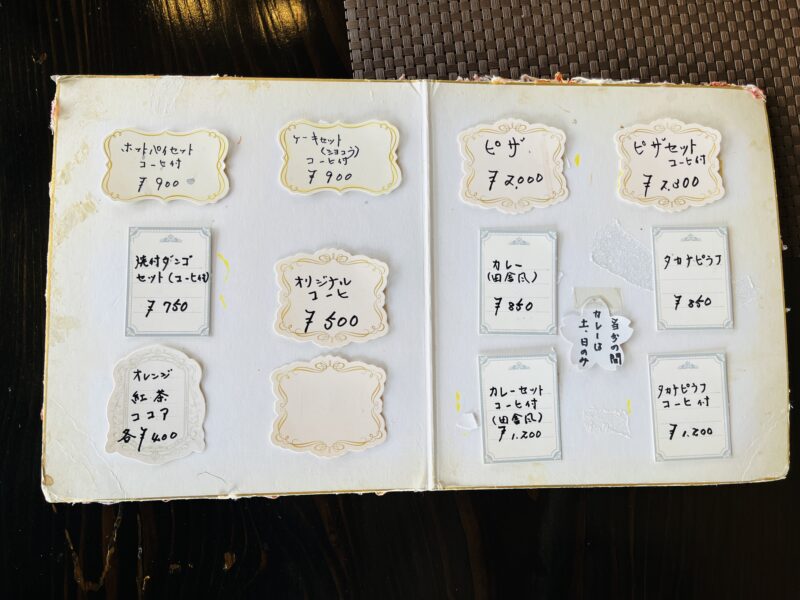 ホットパイセット
コーヒ付
¥900
ケーキセット
(ショコラ)
コーヒ付
¥900
焼付ダンゴ
セット(コーヒ付)
¥750
オリジナル
コーヒ
¥500
オレンジ
紅茶
ココア
各¥400
ピザ
¥2,000
ピザセット
コーヒ付
カレー
(田舎風)
¥850
タカナピラフ
¥850
当分の間
カレーは
土、日のみ
カレーセット
コーヒ付
(田舎風)
¥1,200
タカナピラフ
コーヒ付
¥1,200